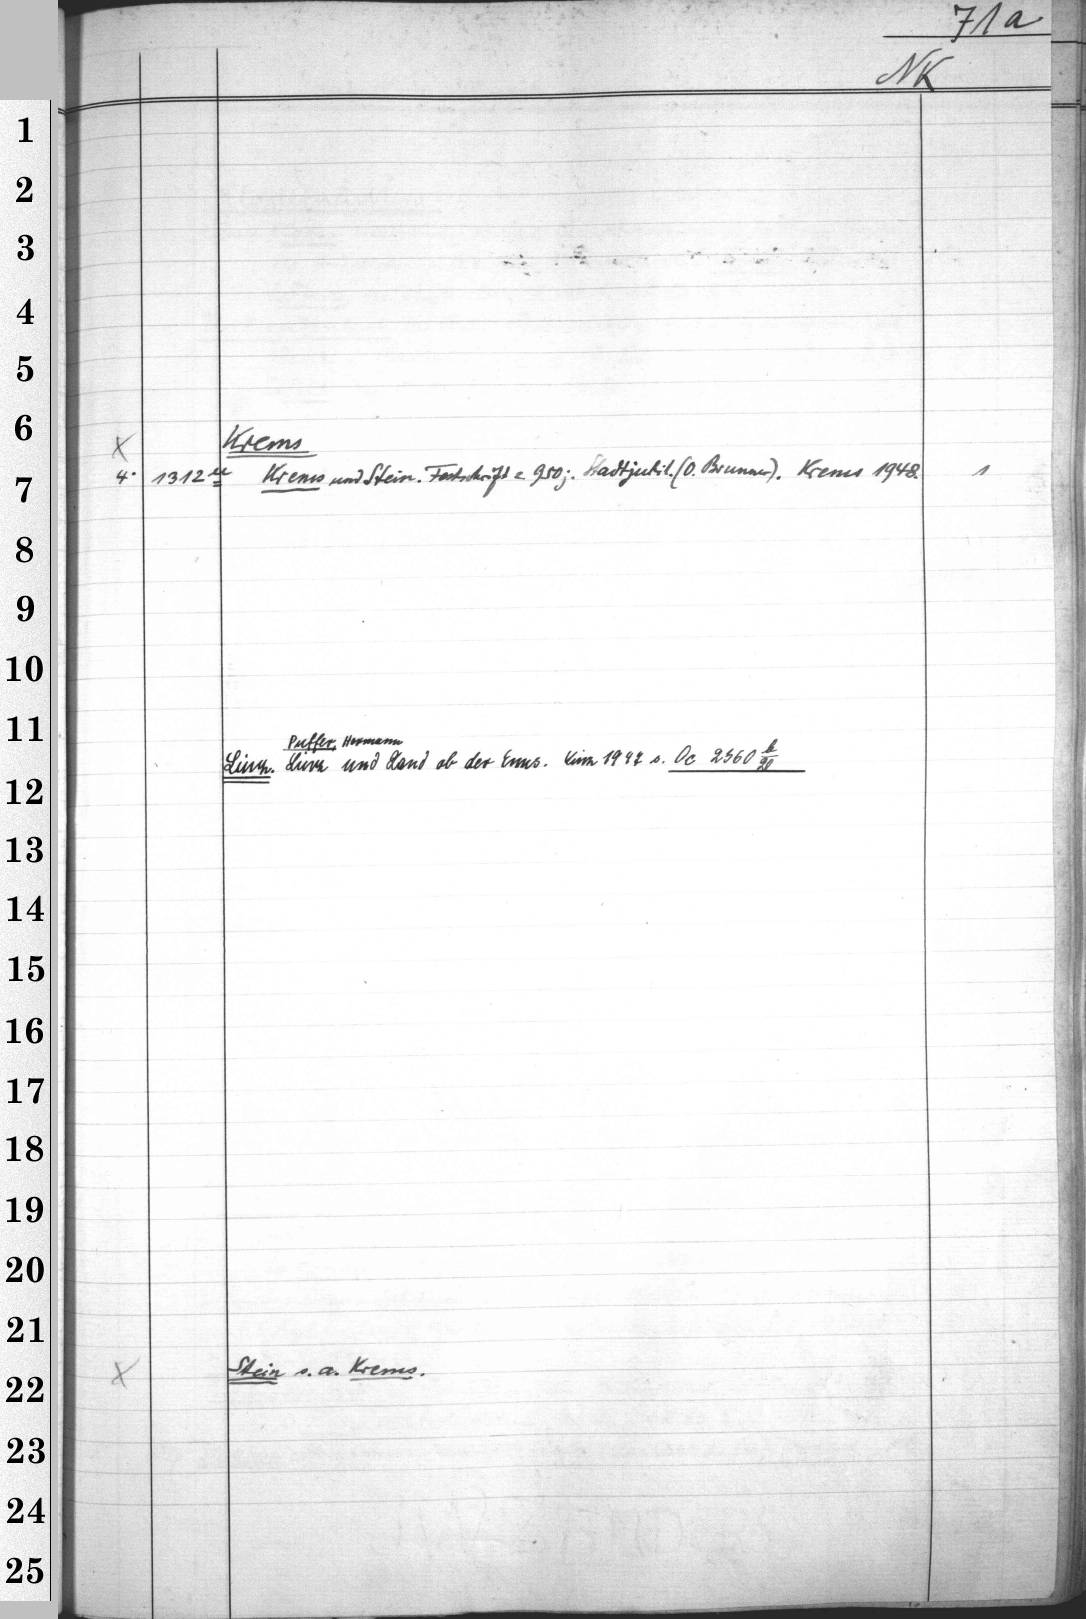 71a
NK
1
2
3
4
5
6
Krems
X
7
4° 1312 m Krems und Stein. Festschrift z. 950j. Stadtjubil. (O. Brunner). Krems 1948. 1
8
9
10
11
Puffer, Hermann
Linz. Linz und Land ob der Enns. Linz 1947 s. Oc 2360 b/20
12
13
14
15
16
17
18
19
20
21
X Stein s. a. Krems.
22
23
24
25